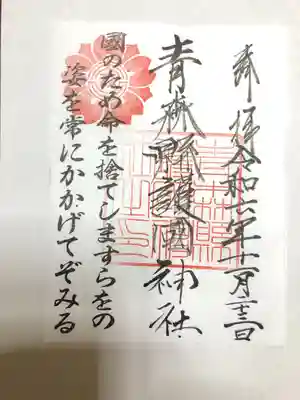 奉拝 令和六年十一月二十三日
青森縣護國神社
國のため命を捨てしますらをの
姿を常にかかげてぞみる